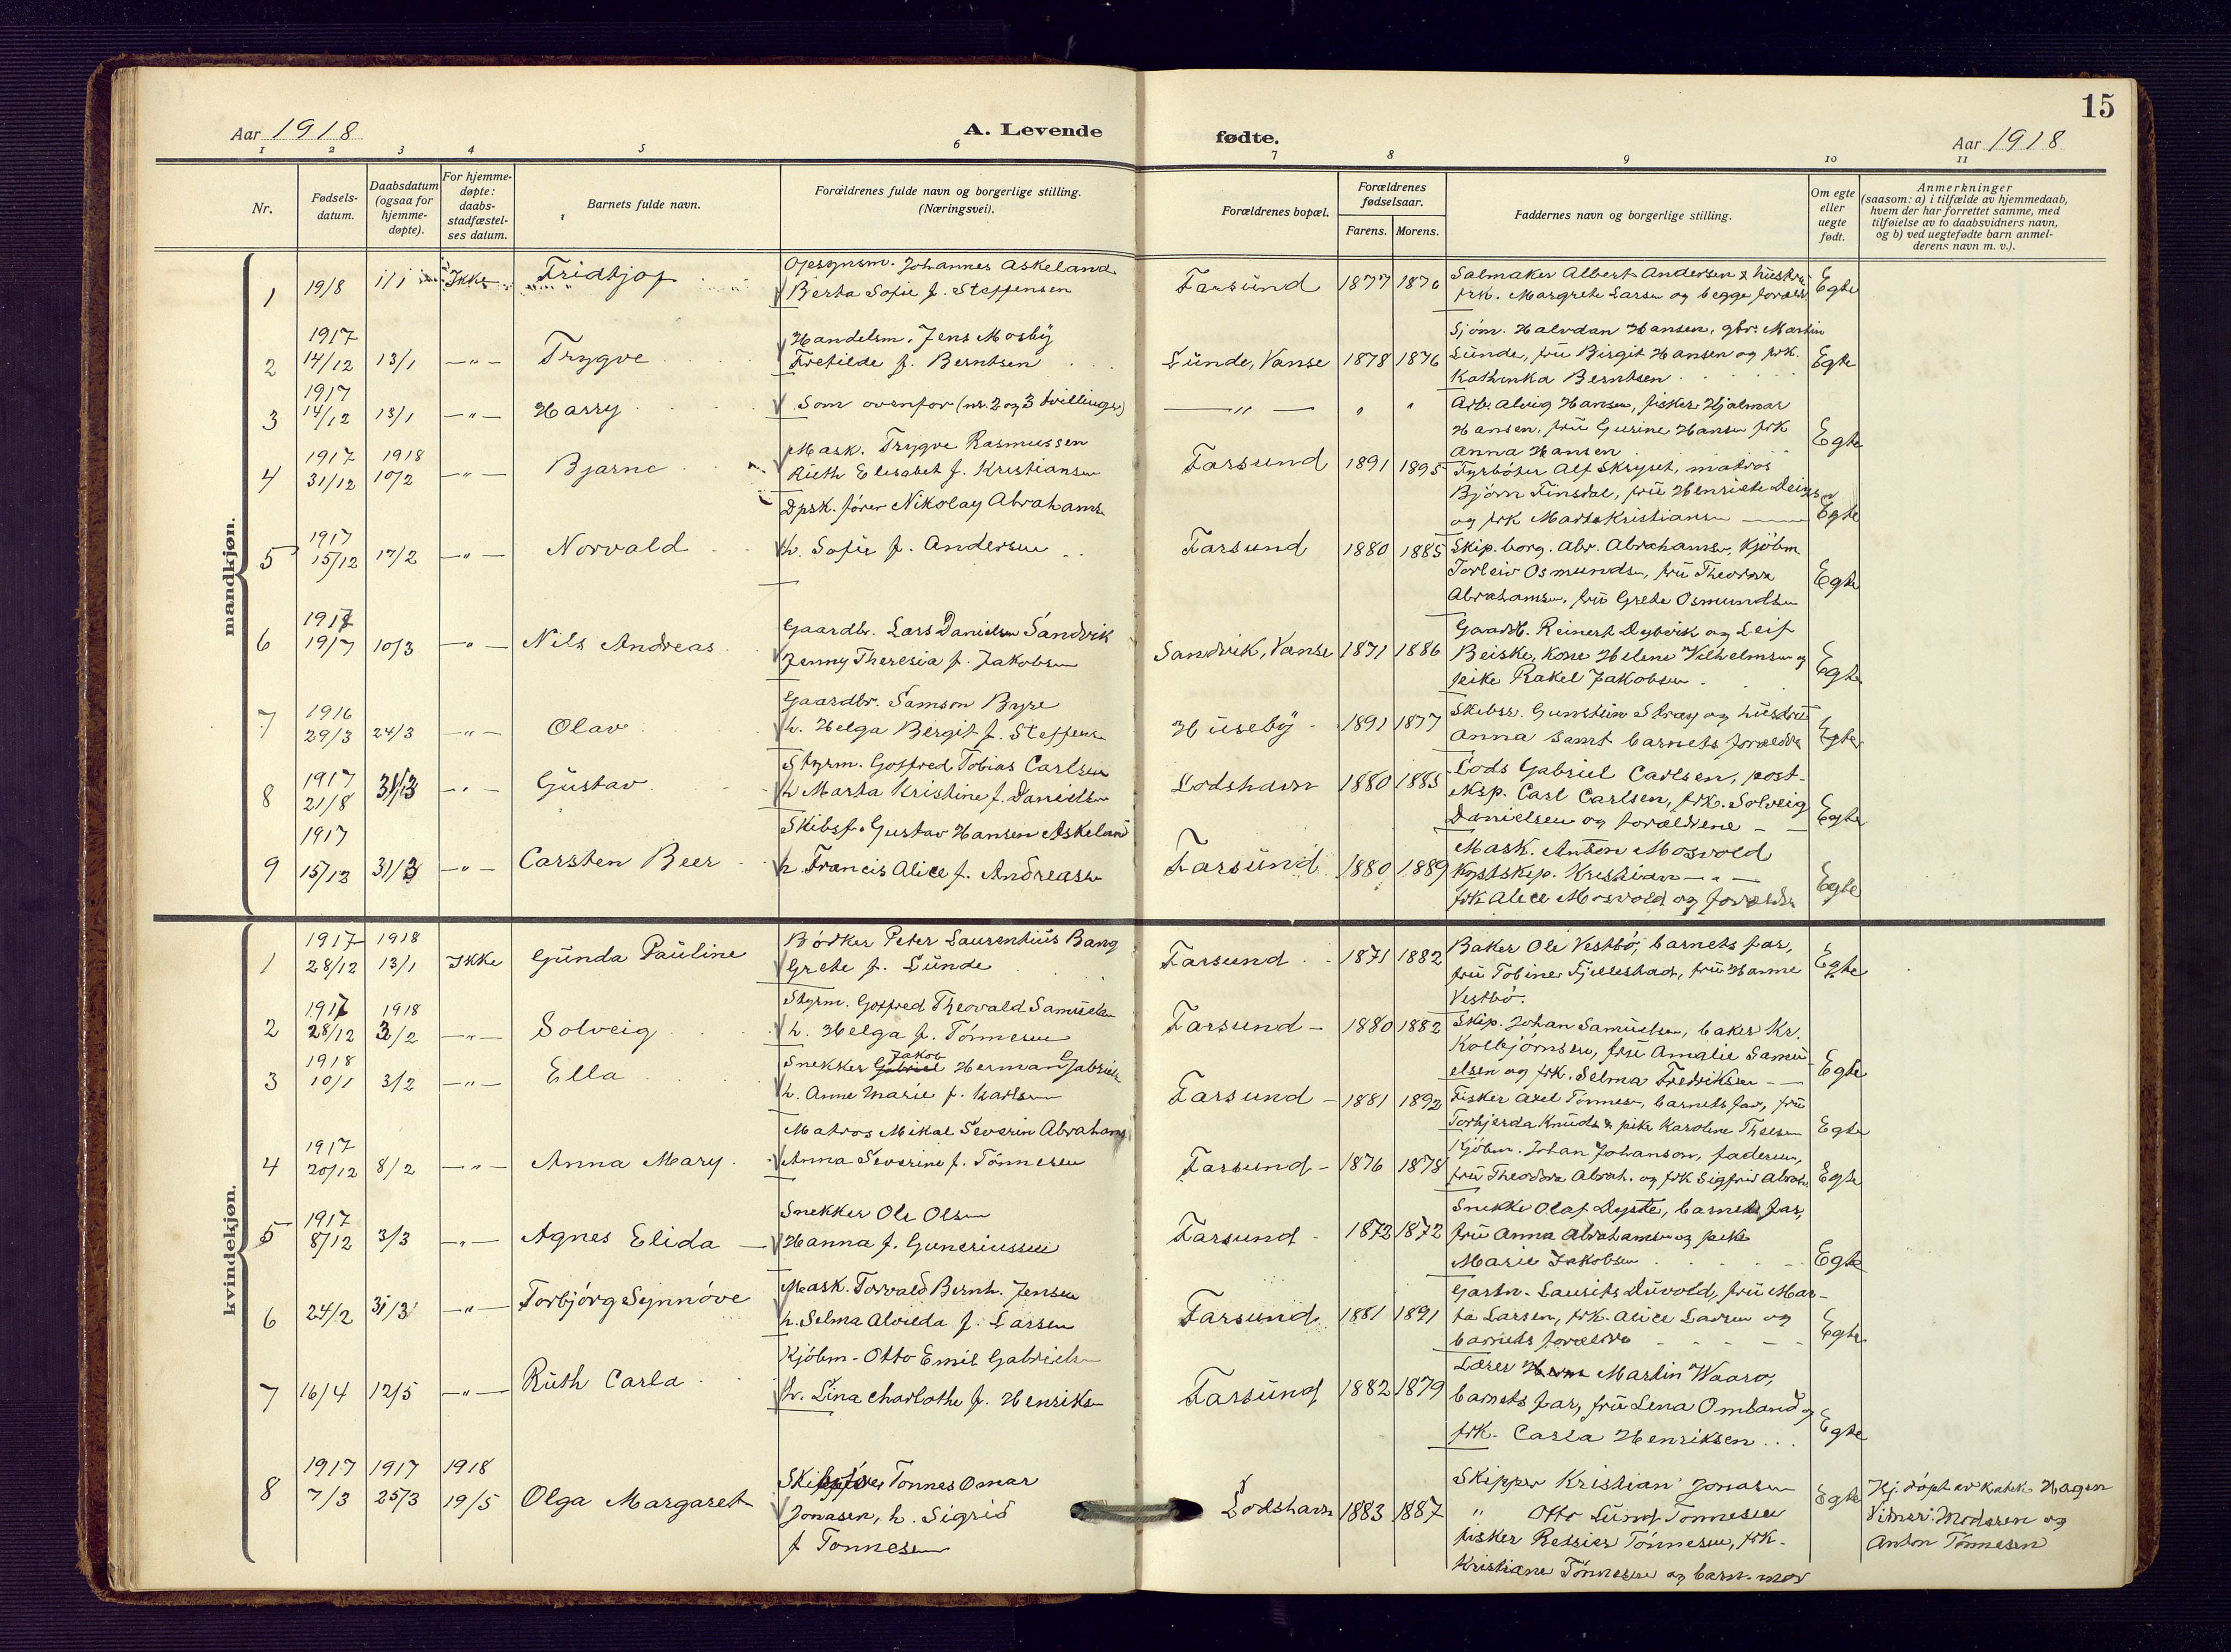 15
Aar 1918
A. Levende
fødte.
Aar 1918
1 2 3 4 5 6 7 8 9 10 11
Nr.
Fødsels-
datum.
Daabsdatum
(ogsaa for
hjemme-
døpte).
For hjemme-
døpte:
daabs-
stadfæstel-
ses datum.
Barnets fulde navn.
Forældrenes fulde navn og borgerlige stilling.
(Næringsvei).
Forældrenes bopæl.
Forældrenes
fødselsaar.
Farens. Morens.
Faddernes navn og borgerlige stilling.
Om egte
eller
uegte
født.
Anmerkninger
(saasom: a) i tilfælde av hjemmedaab,
hvem der har forrettet samme, med
tilføielse av to daabsvidners navn,
og b) ved uegtefødte barn anmel-
derens navn m. v.).
mandkjøn.
1 19/8 1/1 Ikke Fridtjof
Opsynsm. Johannes Askeland
Berta Sofie f. Steffensen
Farsund 1877 1876
Salmaker Albert Andersen & hustru
frk. Margrete Larsen og begge foreldr
Egte
2 1917 14/12 13/1 — " — Trygve
Handelsm. Jens Mosby
Fretilde f. Berntsen
Lunde, Vanse 1878 1876
Sjøm. Halvdan Hansen, gbr. Martin
Lunde, fru Birgit Hansen og frk.
Kathinka Berntsen
Egte
3 1917 14/12 13/1 — " — Harry
Som ovenfor (nr. 2 og 3 tvillinger)
— " — " "
Arb. Alvig Hansen, fisker Hjalmar
Hansen, fru Gurine Hansen frk
Anna Hansen
Egte
4 1917 31/12 1918 10/2 — " — Bjarne
Mask. Trygve Rasmussen
Ruth Elisabet f. Kristiansen
Farsund 1891 1895
Fyrbøter Alf Skryset, matros
Bjørn Finsdal, fru Henriette
og frk Marta Kristiansen
Egte
5 1917 15/12 17/2 — " — Norvald
Dpsk. fører Nikolay Abrahams
h. Sofie f. Andersen
Farsund 1880 1885
Skip. borg. Abr. Abrahamsen, Kjøbm
Torleiv Osmundsen, fru Theodora
Abrahamsen, fru Grete Osmundsen
Egte
6 1917 19/7 10/3 — " — Nils Andreas
Gaardbr. Lars Danielsen Sandvik
Jenny Theresia f. Jakobsen
Sandvik, Vanse 1871 1886
Gaardb. Reinert Dybvik og Leif
Beiske, Kone Helene Vilhelmsen og
pike Rakel Jakobsen
Egte
7 1916 29/3 24/3 — " — Olav
Gaardbr. Samson Byre
h. Helga Bergit f. Steffens
Huseby 1891 1877
Skibsr. Gunstein Stray og hustru
Anna samt barnets foreldre
Egte
8 1917 21/8 31/3 — " — Gustav
Styrm. Gotfred Tobias Carlsen
h Marta Kristine f. Danielsen
Lodshavn 1880 1885
Lods Gabriel Carlsen, post-
eksp. Carl Carlsen, frk. Solveig
Danielsen og forældrene
Egte
9 1917 15/12 31/3 — " — Carsten Beer
Skibsf. Gustav Hansen Askeland
h. Francis Alice f. Andreasen
Farsund 1880 1889
Mask. Anton Mosvold
Kystskip. Kristian — " —
frk Alice Mosvold og foreldre
Egte
kvindekjøn.
1 1917 28/12 1918 13/1 Ikke Gunda Pauline
Bødker Peter Laurentius Bang
Grete f. Lunde
Farsund 1871 1882
Baker Ole Vestbø, barnets far,
fru Tobine Fjellestad, fru Hanne
Vestbø.
Egte
2 1917 28/12 1918 3/2 — " — Solveig
Styrm. Gotfred Theovald Samuelsen
h. Helga f. Tønnesen
Farsund 1880 1882
Skip. Johan Samuelsen, baker Kr.
Kolbjørnsen, fru Amalie Samu
elsen og frk. Selma Fredriksen
Egte
3 1918 10/1 3/2 — " — Ella
Snekker Gabriel Jakob Herman Gabriels
h. Anne Marie f. Karlsen
Farsund 1881 1892
Fisker Axel Tønnesen, barnets far, fru
Torhjerda Knuds & pike Karoline
Egte
4 1917 20/12 8/2 — " — Anna Mary
Matros Mikal Severin Abrahams
Anna Severine f. Tønnesen
Farsund 1876 1878
Kjøbm. Johan Johanson, faderen,
fru Theodora Abrah. og frk Sigfrid Abrah
Egte
5 1917 8/12 3/3 — " — Agnes Elida
Snekker Ole Olsen
Hanna f. Guneriussen
Farsund 1872 1872
Snekke Olaf Dyste, barnets far,
fru Anna Abrahamsen og pike
Marie Jakobsen
Egte
6 24/2 31/3 — " — Torbjørg Synnøve
Mask. Torvald Bernh. Jensen
h. Selma Alvilda f. Larsen
Farsund 1881 1891
Gartn. Laurits Duvold, fru Mar-
ta Larsen, frk. Alice Larsen og
barnets foreldre
Egte
7 16/4 12/5 — " — Ruth Carla
Kjøbm. Otto Emil Gabrielsen
h. Lina Charlothe f. Henriks
Farsund 1882 1879
Lærer Martin Waarø,
barnets far, fru Lena Ombland og
frk. Carla Henriksen
Egte
8 1917 7/3 1917 25/3 1918 19/5 Olga Margaret
Skibsfører Tønnes Omar
Jonasen, h. Sigrid
f Tønnesen
Lodshavn 1883 1887
Skipper Kristian Jonasen
" Otto Lund Tønnesen
fisker Tønnesen, frk.
Kristiane Tønnesen og barn. mor
Egte
Hj. døpt av Hagen
Vitner: Modszen og
Anton Tønnesen